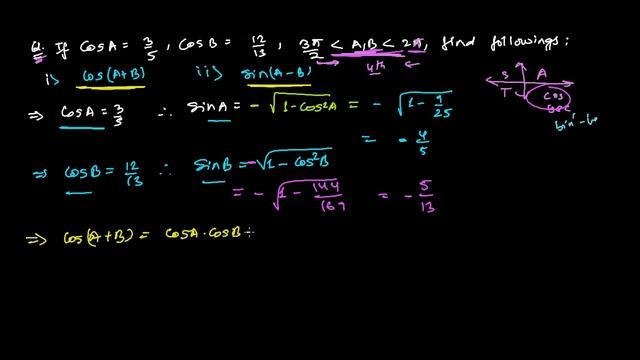 Q. If CosA = 3/5, CosB = 12/13, 3π/2 < A,B < 2π, find followings:
i) cos(A+B) ii) sin(A-B)
4th
S A
T cos
sec
⇒ CosA = 3/5 ∴ SinA = -√(1-cos²A) = -√(1 - 9/25)
= -4/5
⇒ CosB = 12/13 ∴ SinB = -√(1-cos²B)
= -√(1 - 144/169) = -5/13
⇒ cos(A+B) = cosA.cosB -